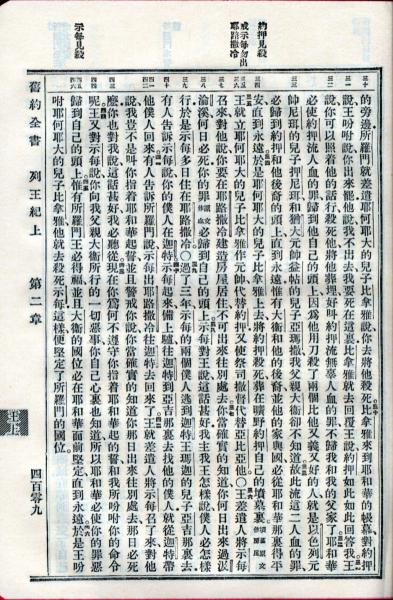 約押見殺
戒示每勿出
耶路撒冷
示每見殺
的旁邊所羅門就差遣耶何耶大的兒子比拿雅說你去將他殺死比拿雅來到耶和華的帳幕對約押
說王吩咐說你出來罷他說我不出去我要死在這裏比拿雅就去回覆王說約押如此如此回答我王
說你可以照着他的話行殺死他將他葬埋好叫約押流無辜人血的罪不歸我和我的父家了耶和華
必使約押流人血的罪歸到他自己的頭上因爲他用刀殺了兩個比他又義又好的人就是以色列元
帥尼珥的兒子押尼珥和猶大元帥益帖的兒子亞瑪撒我父親大衛卻不知道故此流這二人血的罪
必歸到約押和他後裔的頭上直到永遠惟有大衛和他的後裔並他的家與國必從耶和華那裏得平
安直到永遠於是耶何耶大的兒子比拿雅上去將約押殺死葬在曠野約押自己的墳墓裏墳墓原文作房屋
王就立耶何耶大的兒子比拿雅作元帥代替約押又使祭司撒督代替亞比亞他○王差遣人將示每
召來對他說你要在耶路撒冷建造房屋居住不可出來往別處去你當確實的知道你何日出來過汲
淪溪何日必死你的罪罪原文作血必歸到自己的頭上示每對王說這話甚好我主我王怎樣說僕人必怎樣
行於是示每多日住在耶路撒冷○過了三年示每的兩個僕人逃到迦特王瑪迦的兒子亞吉那裏去
有人告訴示每說你的僕人在迦特示每起來備上驢往迦特到亞吉那裏去找他的僕人就從迦特帶
他僕人回來有人告訴所羅門說示每出耶路撒冷往迦特去回來了王就差遣人將示每召了來對他
說我豈不是叫你指着耶和華起誓並且警戒你說你當確實的知道你那日出來往別處去那日必死
麽你也對我說這話甚好我必聽從現在你爲何不遵守你指着耶和華起的誓和我所吩咐你的命令
呢王又對示每說你向我父親大衛所行的一切惡事你自己心裏也知道所以耶和華必使你的罪惡
歸到自己的頭上惟有所羅門王必得福並且大衛的國位必在耶和華面前堅定直到永遠於是王吩
咐耶何耶大的兒子比拿雅他就去殺死示每這樣便堅定了所羅門的國位
舊約全書 列王紀上 第二章 四百零九